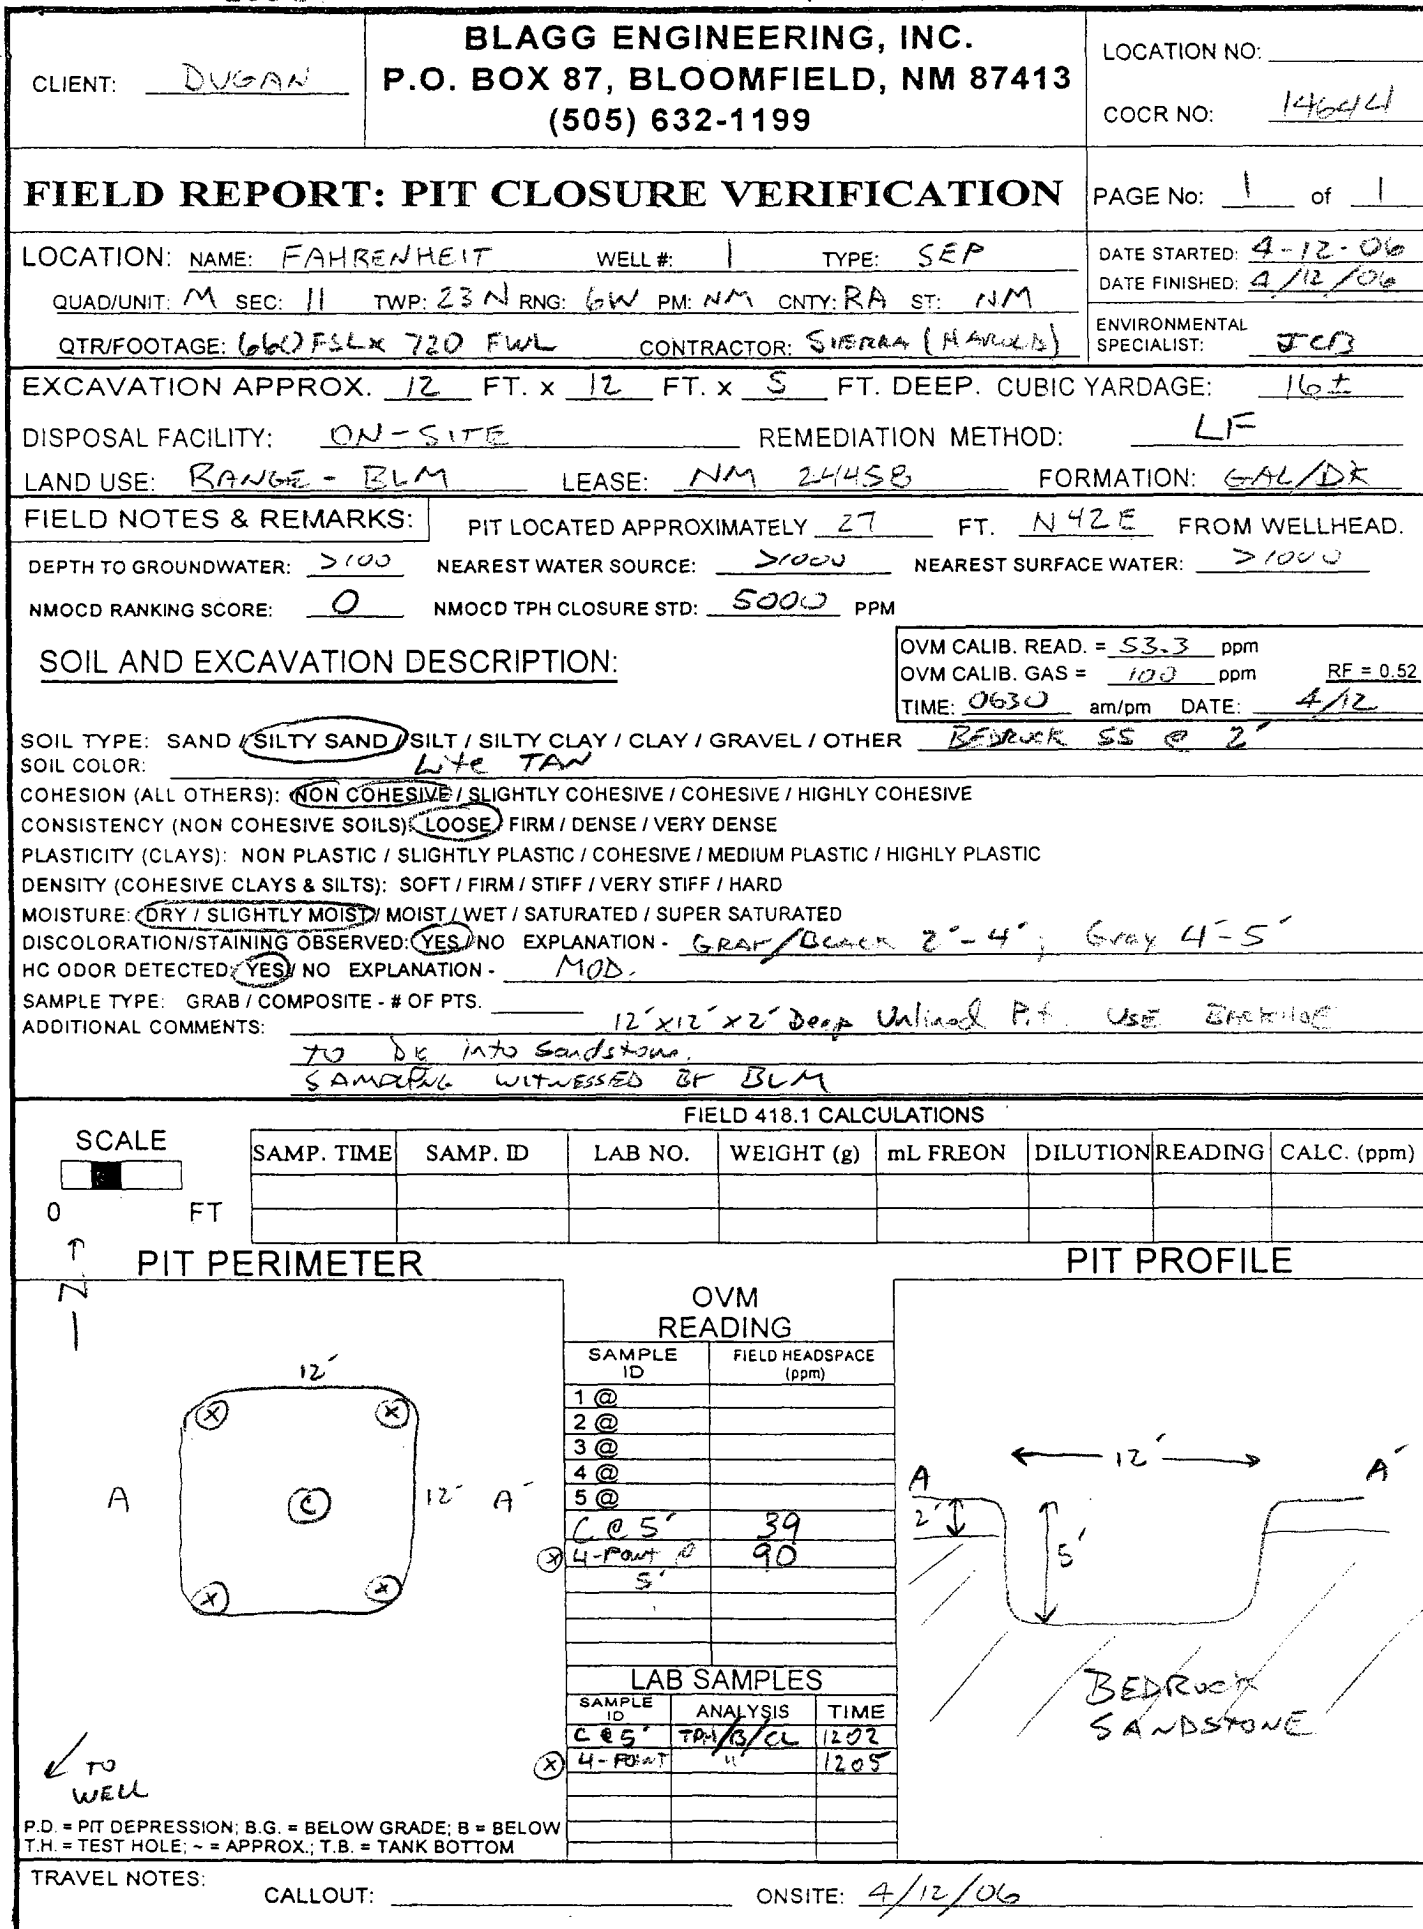 BLAGG ENGINEERING, INC.
P.O. BOX 87, BLOOMFIELD, NM 87413
(505) 632-1199
CLIENT: DUGAN
LOCATION NO:
COCR NO: 14644
FIELD REPORT: PIT CLOSURE VERIFICATION
PAGE No: 1 of 1
LOCATION: NAME: FAHRENHEIT WELL #: 1 TYPE: SEP
QUAD/UNIT: M SEC: 11 TWP: 23N RNG: 6W PM: NM CNTY: RA ST: NM
QTR/FOOTAGE: 660 FSL x 720 FWL CONTRACTOR: SIERRA (HAROLD)
DATE STARTED: 4-12-06
DATE FINISHED: 4/12/06
ENVIRONMENTAL
SPECIALIST: JCB
EXCAVATION APPROX. 12 FT. x 12 FT. x 5 FT. DEEP. CUBIC YARDAGE: 16±
DISPOSAL FACILITY: ON-SITE REMEDIATION METHOD: LF
LAND USE: RANGE - BLM LEASE: NM 24458 FORMATION: GAL/DK
FIELD NOTES & REMARKS: PIT LOCATED APPROXIMATELY 27 FT. N42E FROM WELLHEAD.
DEPTH TO GROUNDWATER: >100 NEAREST WATER SOURCE: >1000 NEAREST SURFACE WATER: >1000
NMOCD RANKING SCORE: 0 NMOCD TPH CLOSURE STD: 5000 PPM
SOIL AND EXCAVATION DESCRIPTION:
OVM CALIB. READ. = 53.3 ppm
OVM CALIB. GAS = 100 ppm RF = 0.52
TIME: 0630 am/pm DATE: 4/12
SOIL TYPE: SAND / SILTY SAND / SILT / SILTY CLAY / CLAY / GRAVEL / OTHER BEDROCK SS @ 2'
SOIL COLOR: Lite TAN
COHESION (ALL OTHERS): NON COHESIVE / SLIGHTLY COHESIVE / COHESIVE / HIGHLY COHESIVE
CONSISTENCY (NON COHESIVE SOILS): LOOSE / FIRM / DENSE / VERY DENSE
PLASTICITY (CLAYS): NON PLASTIC / SLIGHTLY PLASTIC / COHESIVE / MEDIUM PLASTIC / HIGHLY PLASTIC
DENSITY (COHESIVE CLAYS & SILTS): SOFT / FIRM / STIFF / VERY STIFF / HARD
MOISTURE: DRY / SLIGHTLY MOIST / MOIST / WET / SATURATED / SUPER SATURATED
DISCOLORATION/STAINING OBSERVED: YES / NO EXPLANATION - GRAY/BLACK 2'-4'; Gray 4'-5'
HC ODOR DETECTED: YES / NO EXPLANATION - MOD.
SAMPLE TYPE: GRAB / COMPOSITE - # OF PTS.
ADDITIONAL COMMENTS: 12'x12'x2' Deep Unlined Pit. USE BACKHOE
TO into Sandstone.
SAMPLING WITNESSED BY BLM
FIELD 418.1 CALCULATIONS
SCALE
0 FT
SAMP. TIME SAMP. ID LAB NO. WEIGHT (g) mL FREON DILUTION READING CALC. (ppm)
PIT PERIMETER
N
12'
X X
A C 12' A'
X X
TO
WELL
P.D. = PIT DEPRESSION; B.G. = BELOW GRADE; B = BELOW
T.H. = TEST HOLE; ~ = APPROX.; T.B. = TANK BOTTOM
OVM
READING
SAMPLE ID FIELD HEADSPACE (ppm)
1 @
2 @
3 @
4 @
5 @
C @ 5' 39
X 4-Point @ 90
5'
LAB SAMPLES
SAMPLE ID ANALYSIS TIME
C @ 5' TPH/B/CL 1202
X 4-POINT " 1205
PIT PROFILE
12'
A A'
2'
5'
BEDROCK
SANDSTONE
TRAVEL NOTES:
CALLOUT: ONSITE: 4/12/06